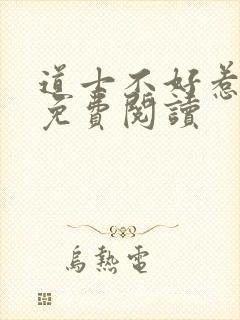 道士不好惹
免費閱讀
烏熱電